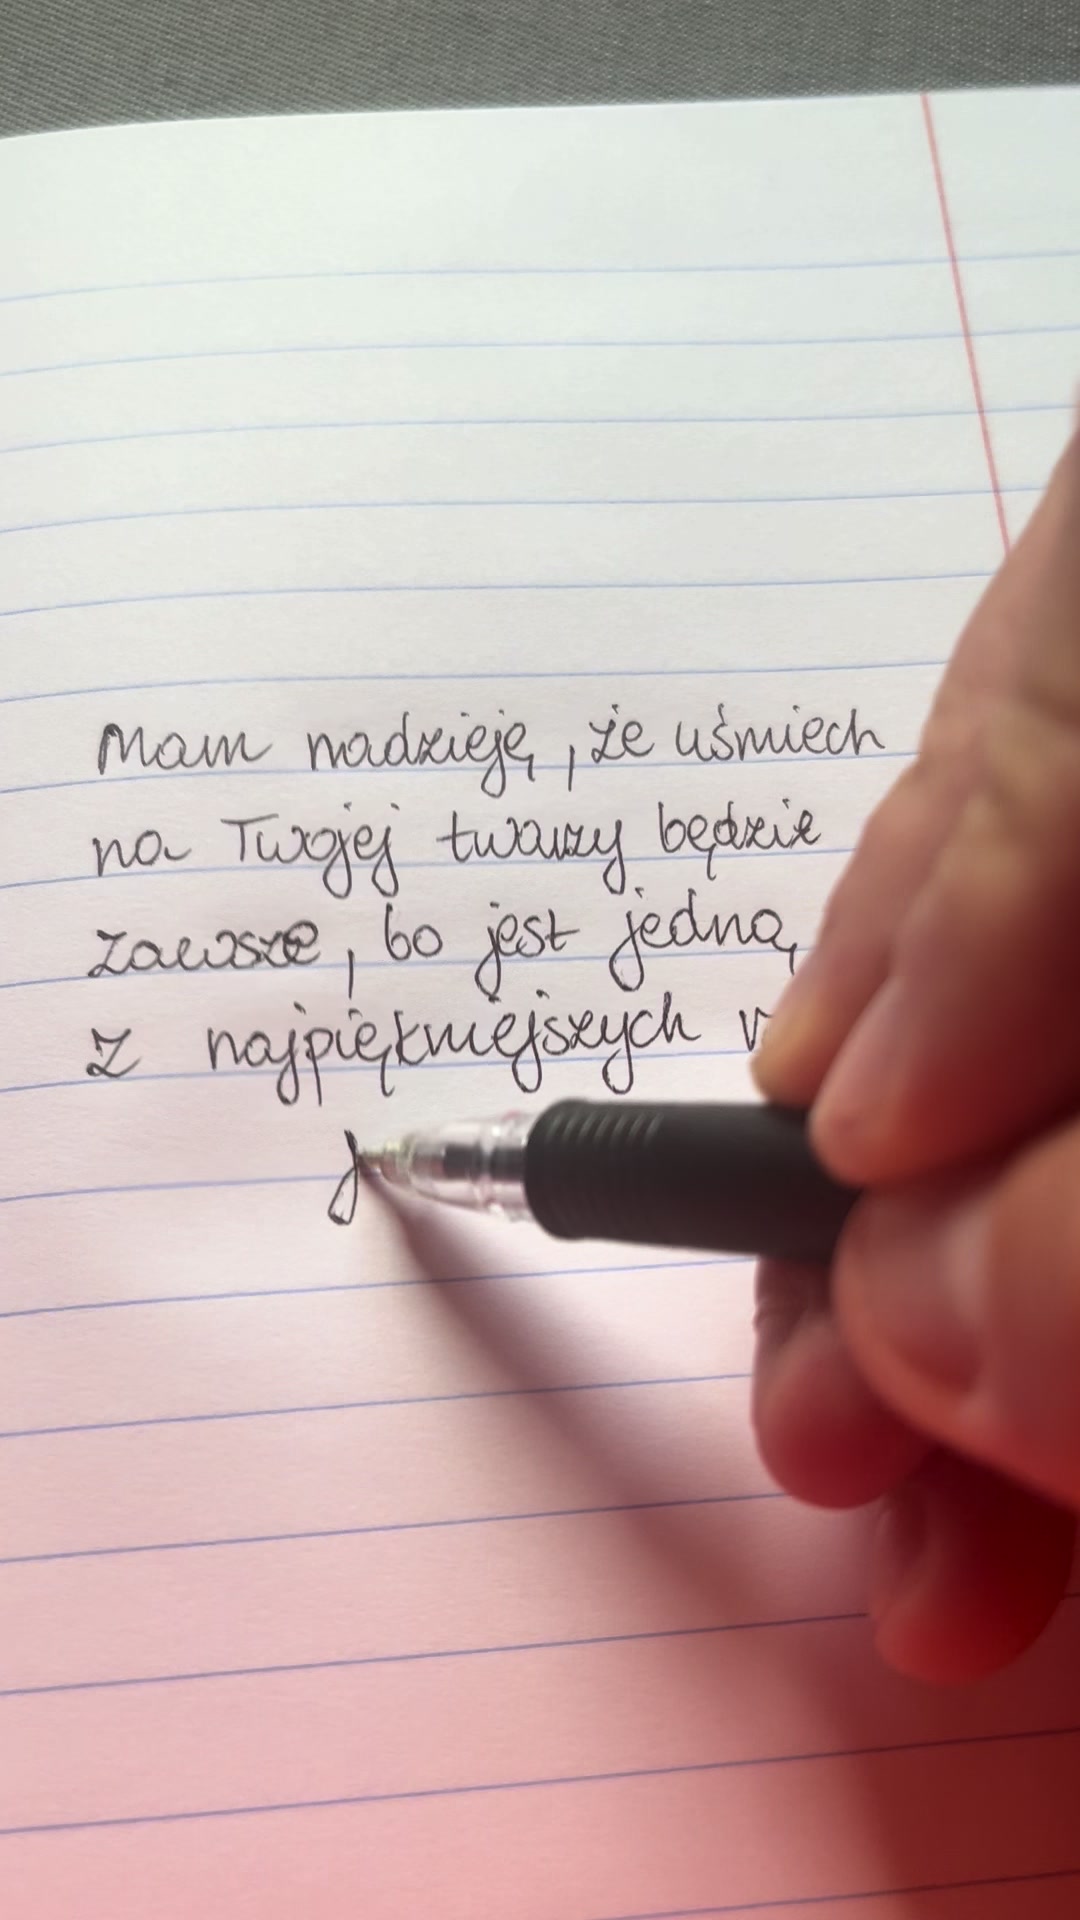 Mam nadzieję, że uśmiech
na Twojej twarzy będzie
zawsze, bo jest jedną
z najpiękniejszych